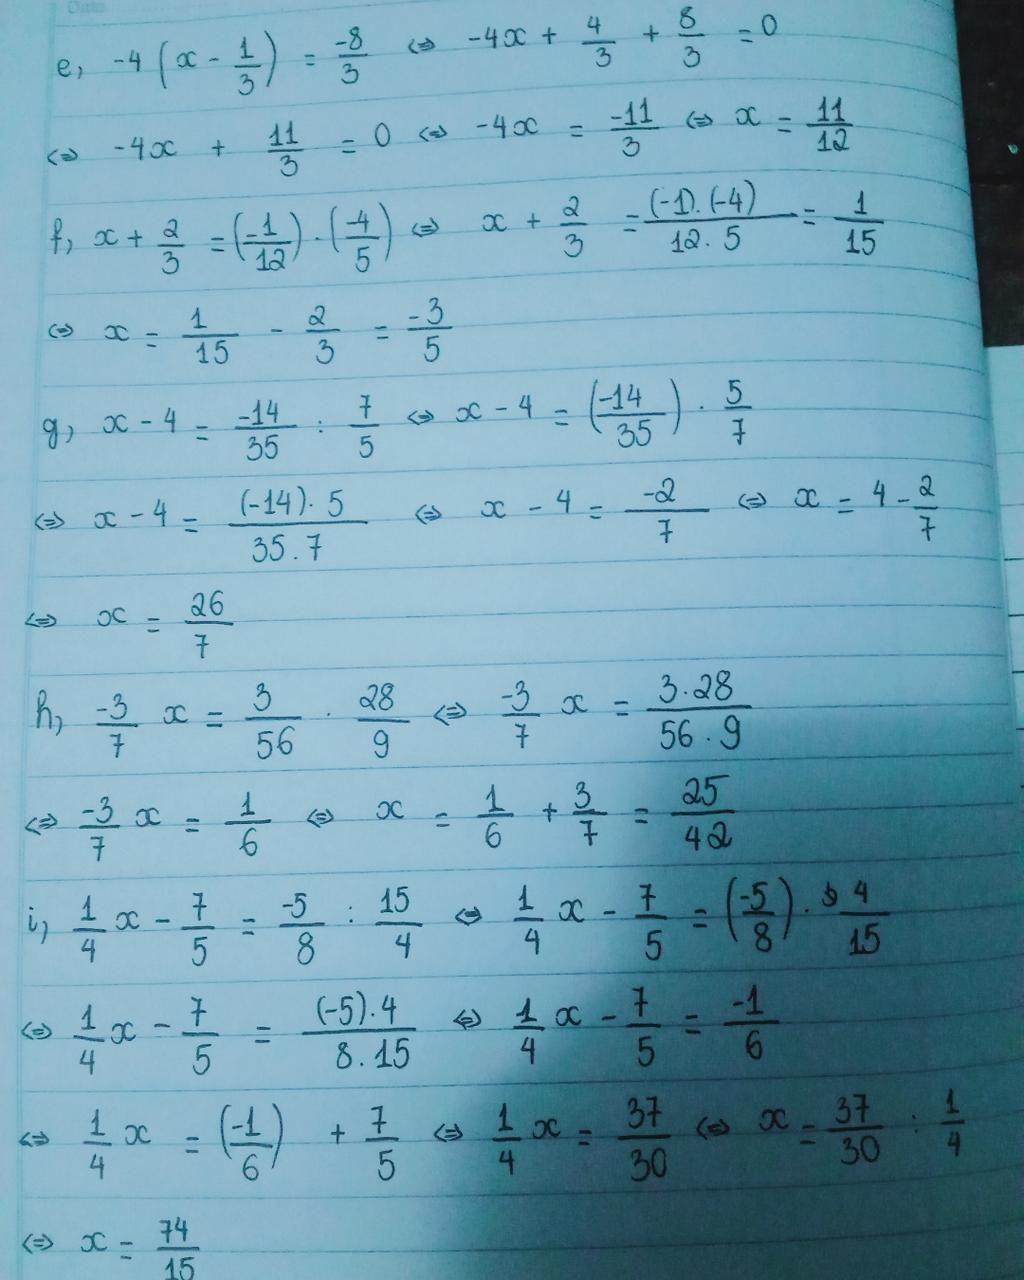 e, -4 (x - 1/3) = -8/3 ⇔ -4x + 4/3 + 8/3 = 0
⇔ -4x + 11/3 = 0 ⇔ -4x = -11/3 ⇔ x = 11/12
f, x + 2/3 = (-1/12) . (-4/5) ⇔ x + 2/3 = (-1).(-4)/12.5 = 1/15
⇔ x = 1/15 - 2/3 = -3/5
g, x - 4 = -14/35 : 7/5 ⇔ x - 4 = (-14/35) . 5/7
⇔ x - 4 = (-14).5/35.7 ⇔ x - 4 = -2/7 ⇔ x = 4 - 2/7
⇔ x = 26/7
h, -3/7 x = 3/56 . 28/9 ⇔ -3/7 x = 3.28/56.9
⇔ -3/7 x = 1/6 ⇔ x = 1/6 + 3/7 = 25/42
i, 1/4 x - 7/5 = -5/8 : 15/4 ⇔ 1/4 x - 7/5 = (-5/8) . 4/15
⇔ 1/4 x - 7/5 = (-5).4/8.15 ⇔ 1/4 x - 7/5 = -1/6
⇔ 1/4 x = (-1/6) + 7/5 ⇔ 1/4 x = 37/30 ⇔ x = 37/30 : 1/4
⇔ x = 74/15